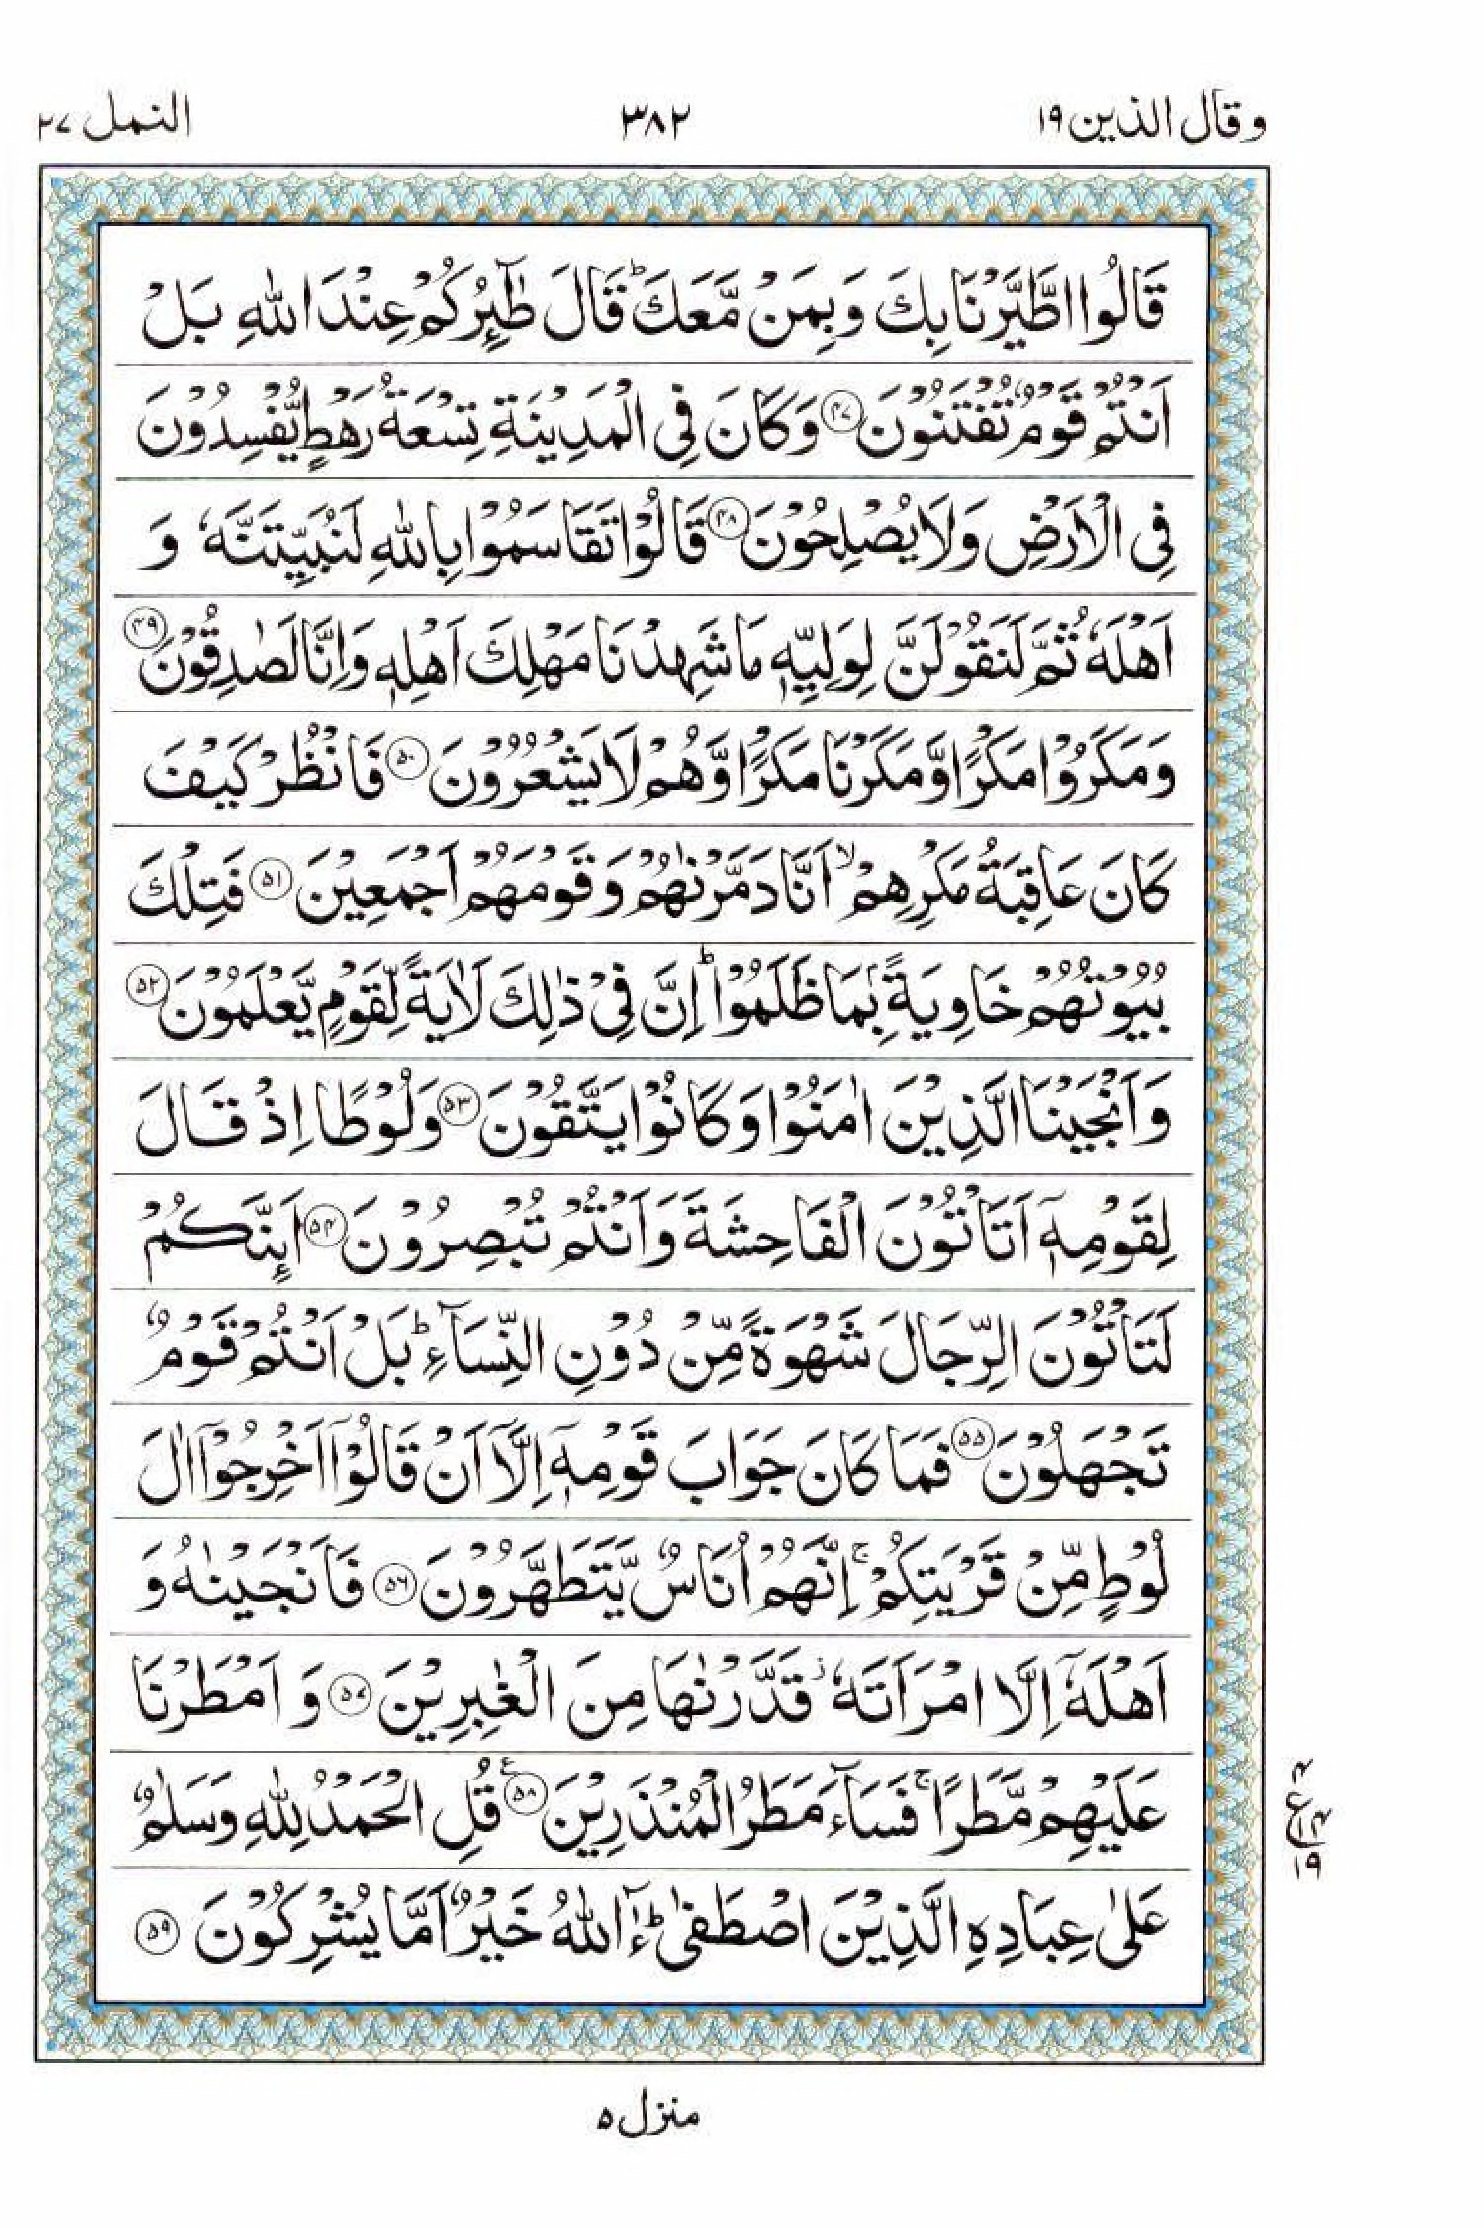 وقال الذین ۱۹
۳۸۲
النمل ۲۷
قَالُوا اطَّیَّرْنَا بِكَ وَ بِمَنْ مَّعَكَ ؕ قَالَ طٰٓىِٕرُكُمْ عِنْدَ اللّٰهِ بَلْ
اَنْتُمْ قَوْمٌ تُفْتَنُوْنَ ۴۷ وَ كَانَ فِی الْمَدِیْنَةِ تِسْعَةُ رَهْطٍ یُّفْسِدُوْنَ
فِی الْاَرْضِ وَ لَا یُصْلِحُوْنَ ۴۸ قَالُوْا تَقَاسَمُوْا بِاللّٰهِ لَنُبَیِّتَنَّهٗ وَ
اَهْلَهٗ ثُمَّ لَنَقُوْلَنَّ لِوَلِیِّهٖ مَا شَهِدْنَا مَهْلِكَ اَهْلِهٖ وَ اِنَّا لَصٰدِقُوْنَ ۴۹
وَ مَكَرُوْا مَكْرًا وَّ مَكَرْنَا مَكْرًا وَّ هُمْ لَا یَشْعُرُوْنَ ۵۰ فَانْظُرْ كَیْفَ
كَانَ عَاقِبَةُ مَكْرِهِمْ ۙ اَنَّا دَمَّرْنٰهُمْ وَ قَوْمَهُمْ اَجْمَعِیْنَ ۵۱ فَتِلْكَ
بُیُوْتُهُمْ خَاوِیَةًۢ بِمَا ظَلَمُوْا ؕ اِنَّ فِیْ ذٰلِكَ لَاٰیَةً لِّقَوْمٍ یَّعْلَمُوْنَ ۵۲
وَ اَنْجَیْنَا الَّذِیْنَ اٰمَنُوْا وَ كَانُوْا یَتَّقُوْنَ ۵۳ وَ لُوْطًا اِذْ قَالَ
لِقَوْمِهٖۤ اَتَاْتُوْنَ الْفَاحِشَةَ وَ اَنْتُمْ تُبْصِرُوْنَ ۵۴ اَىِٕنَّكُمْ
لَتَاْتُوْنَ الرِّجَالَ شَهْوَةً مِّنْ دُوْنِ النِّسَآءِ ؕ بَلْ اَنْتُمْ قَوْمٌ
تَجْهَلُوْنَ ۵۵ فَمَا كَانَ جَوَابَ قَوْمِهٖۤ اِلَّاۤ اَنْ قَالُوْۤا اَخْرِجُوْۤا اٰلَ
لُوْطٍ مِّنْ قَرْیَتِكُمْ ۚ اِنَّهُمْ اُنَاسٌ یَّتَطَهَّرُوْنَ ۵۶ فَاَنْجَیْنٰهُ وَ
اَهْلَهٗۤ اِلَّا امْرَاَتَهٗ ؗ قَدَّرْنٰهَا مِنَ الْغٰبِرِیْنَ ۵۷ وَ اَمْطَرْنَا
عَلَیْهِمْ مَّطَرًا ۚ فَسَآءَ مَطَرُ الْمُنْذَرِیْنَ ۵۸ قُلِ الْحَمْدُ لِلّٰهِ وَ سَلٰمٌ
۴
ع ۱۴
۱۹
عَلٰی عِبَادِهِ الَّذِیْنَ اصْطَفٰی ؕ ءٰٓاللّٰهُ خَیْرٌ اَمَّا یُشْرِكُوْنَ ۵۹
منزل ۵